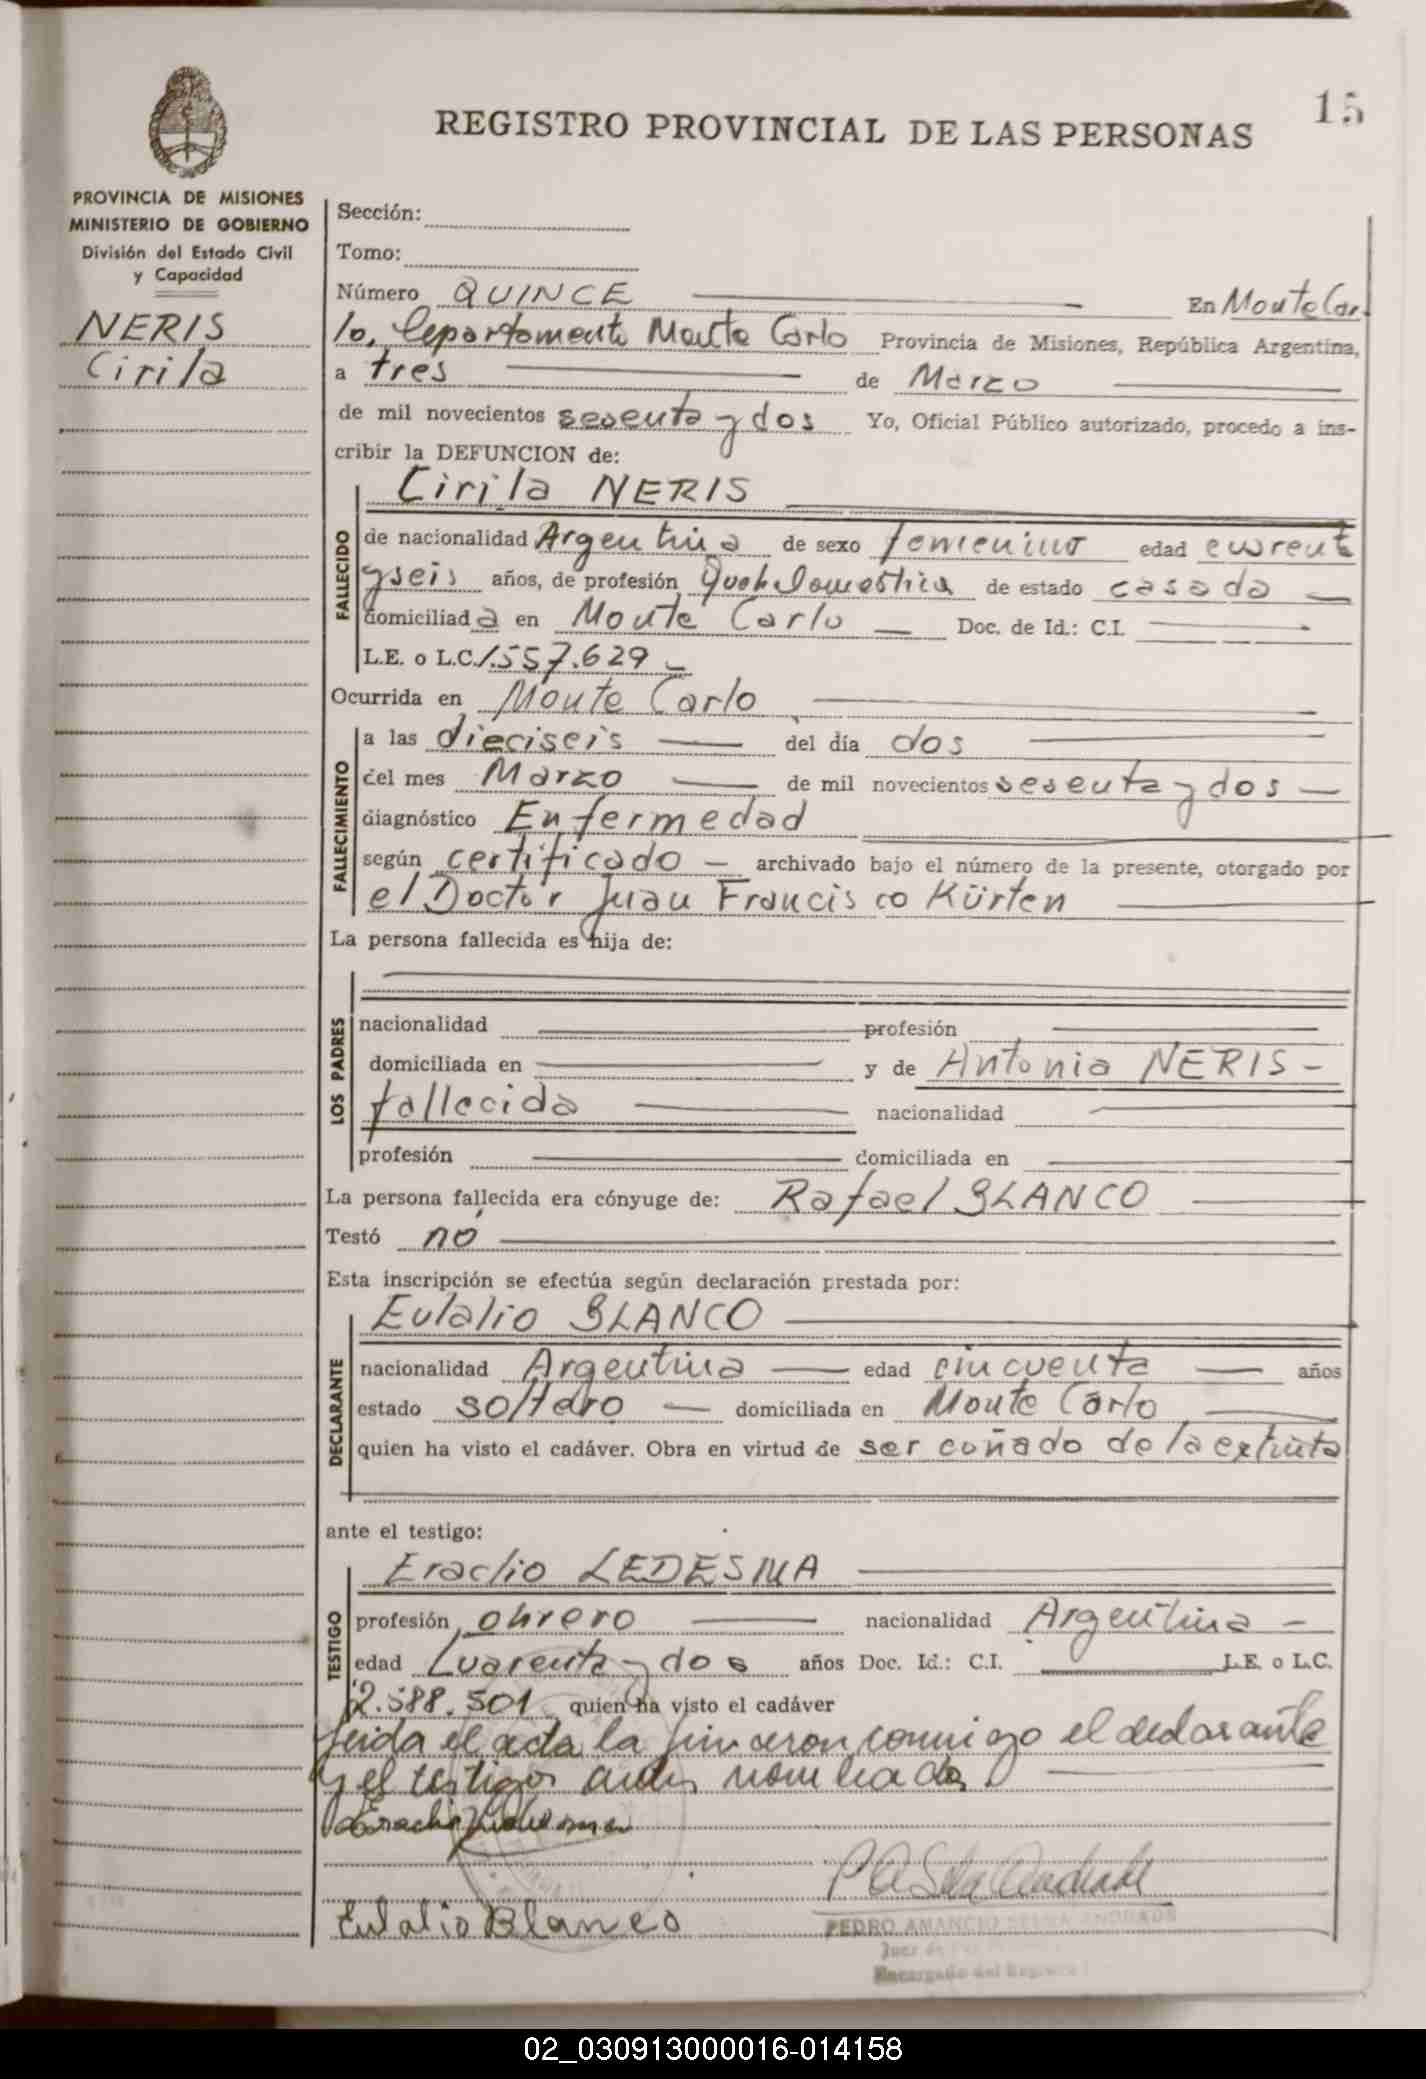 15
REGISTRO PROVINCIAL DE LAS PERSONAS
PROVINCIA DE MISIONES
MINISTERIO DE GOBIERNO
División del Estado Civil
y Capacidad
NERIS
Cirila
Sección:
Tomo:
Número QUINCE En Monte Car
lo, Departamento Monte Carlo Provincia de Misiones, República Argentina,
a tres de Marzo
de mil novecientos sesenta y dos Yo, Oficial Público autorizado, procedo a ins-
cribir la DEFUNCION de:
Cirila NERIS
FALLECIDO
de nacionalidad Argentina de sexo femenino edad cuarent
y seis años, de profesión domestica de estado casada
domiciliada en Monte Carlo Doc. de Id.: C.I.
L.E. o L.C. 1.557.629
Ocurrida en Monte Carlo
FALLECIMIENTO
a las dieciseis del día dos
del mes Marzo de mil novecientos sesenta y dos
diagnóstico Enfermedad
según certificado archivado bajo el número de la presente, otorgado por
el Doctor Juan Francisco Kürten
La persona fallecida es hija de:
LOS PADRES
nacionalidad profesión
domiciliada en y de Antonia NERIS
fallecida nacionalidad
profesión domiciliada en
La persona fallecida era cónyuge de: Rafael BLANCO
Testó nó
Esta inscripción se efectúa según declaración prestada por:
Eulalio BLANCO
DECLARANTE
nacionalidad Argentina edad cincuenta años
estado soltero domiciliada en Monte Carlo
quien ha visto el cadáver. Obra en virtud de ser cuñado de la extinta
ante el testigo:
Eraclio LEDESMA
TESTIGO
profesión obrero nacionalidad Argentina
edad Cuarenta y dos años Doc. Id.: C.I. L.E. o L.C.
2.588.501 quien ha visto el cadáver
Leida el acta la firmaron conmigo el declarante
y el testigo antes nombrados
Eraclio Ledesma
Eulalio Blanco
PEDRO AMANCIO SELVA ANDRADE
Juez de
Encargado del Registro
02_030913000016-014158